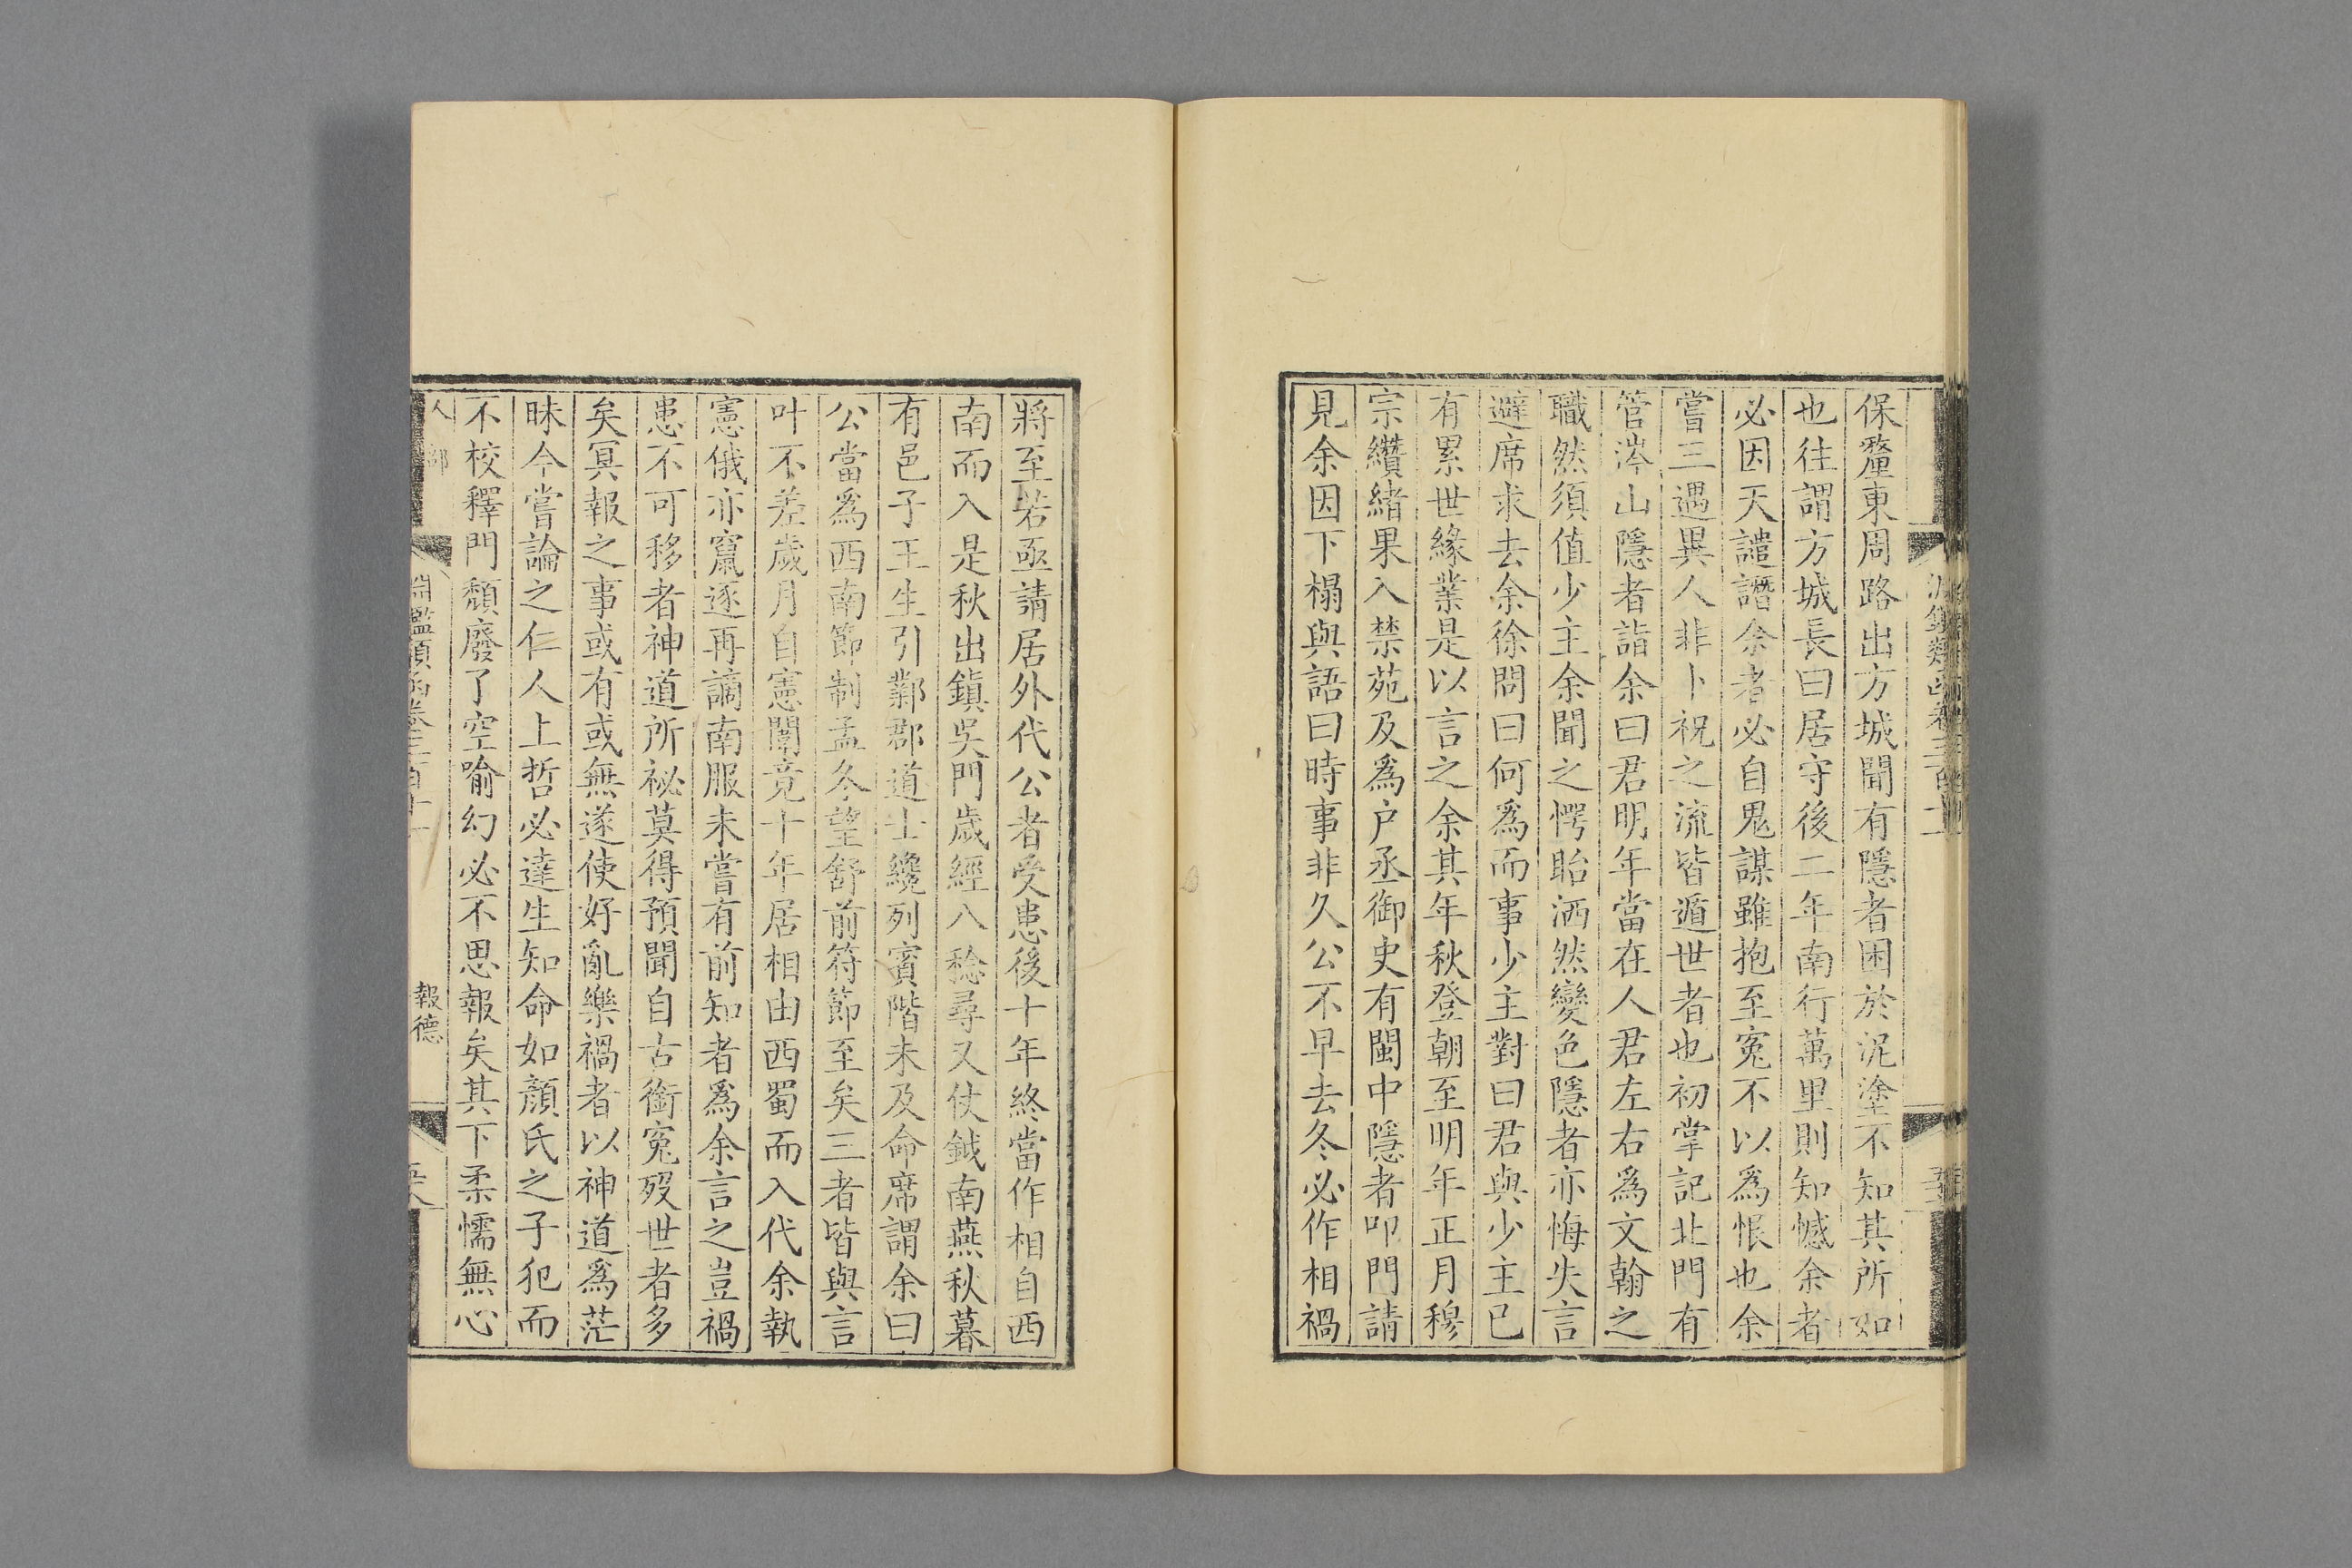 保釐東周路出方城聞有隱者困於泥塗不知其所如
也往謂方城長曰居守後二年南行萬里則知憾余者
必因天譴譖余者必自鬼謀雖抱至寃不以爲恨也余
嘗三遇異人非卜祝之流皆遁世者也初掌記北門有
管涔山隱者詣余曰君明年當在人君左右爲文翰之
職然須值少主余聞之愕眙洒然變色隱者亦悔失言
避席求去余徐問曰何爲而事少主對曰君與少主已
有累世緣業是以言之余其年秋登朝至明年正月穆
宗纘緒果入禁苑及爲户丞御史有閩中隱者叩門請
見余因下榻與語曰時事非久公不早去冬必作相禍
將至若亟請居外代公者受患後十年終當作相自西
南而入是秋出鎮吳門歲經八稔尋又仗鉞南燕秋暮
有邑子王生引鄴郡道士纔列賓階未及命席謂余曰
公當爲西南節制孟冬望舒前符節至矣三者皆與言
叶不差歲月自憲闈竟十年居相由西蜀而入代余執
憲俄亦竄逐再謫南服未嘗有前知者爲余言之豈禍
患不可移者神道所祕莫得預聞自古銜寃殁世者多
矣冥報之事或有或無遂使好亂樂禍者以神道爲茫
昧今嘗論之仁人上哲必達生知命如顏氏之子犯而
不校釋門頹廢了空喻幻必不思報矣其下柔懦無心
人部
淵鑑類函卷三百十一
報德